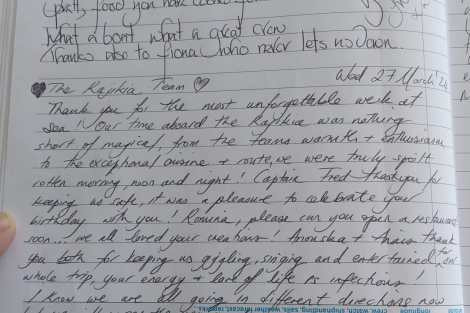 food you
What a boat, what a great crew
Thanks also to Fiona who never lets us down.
The Rapkia Team
Wed 27 March
Thank you for the most unforgettable week at
sea! Our time aboard the Rapkia was nothing
short of magical, from the teams warmth + enthusiasm
to the exceptional cuisine + route, we were truly spoilt
rotten morning, noon and night! Captain Fred thankyou for
keeping us safe, it was a pleasure to celebrate your
birthday with you! please can you open a restaurant
soon... we all loved your creations! thank
you both for keeping us giggling, singing and entertained for
whole trip, your energy + love of life is infectious!
I know we are all going in different directions now
longitude crew, watch, shiphandling, sails, weather forecast, repairs